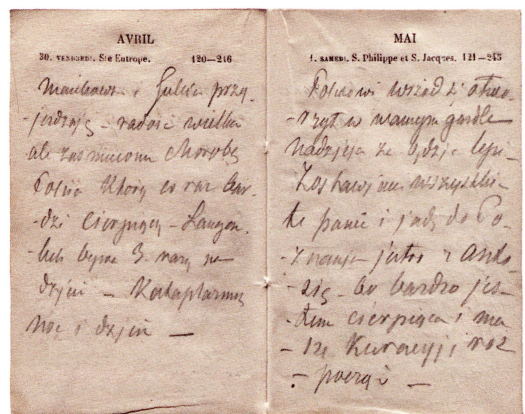 AVRIL
30. VENDREDI. Ste Eutrope. 120—246
i Gucia przy-
-jeżdżają – radość wielka
ale zasmucona chorobą
Tolcia który co raz bar-
-dzi cierpiący –
bylse 3 razy na
dzień – Kataplazmy
noc i dzień —
MAI
1. SAMEDI. S. Philippe et S. Jacques. 121—245
wrzód się otwo-
-rzył w samym gardle
nadzieja że będzie lepi-
Zostawiam wszystki-
-ke panie i jadę do Po-
-znania jutro z Anto-
-sią – bo bardzo jes-
-tem cierpiąca i mu-
-szę Kuracyję roz
– począć —